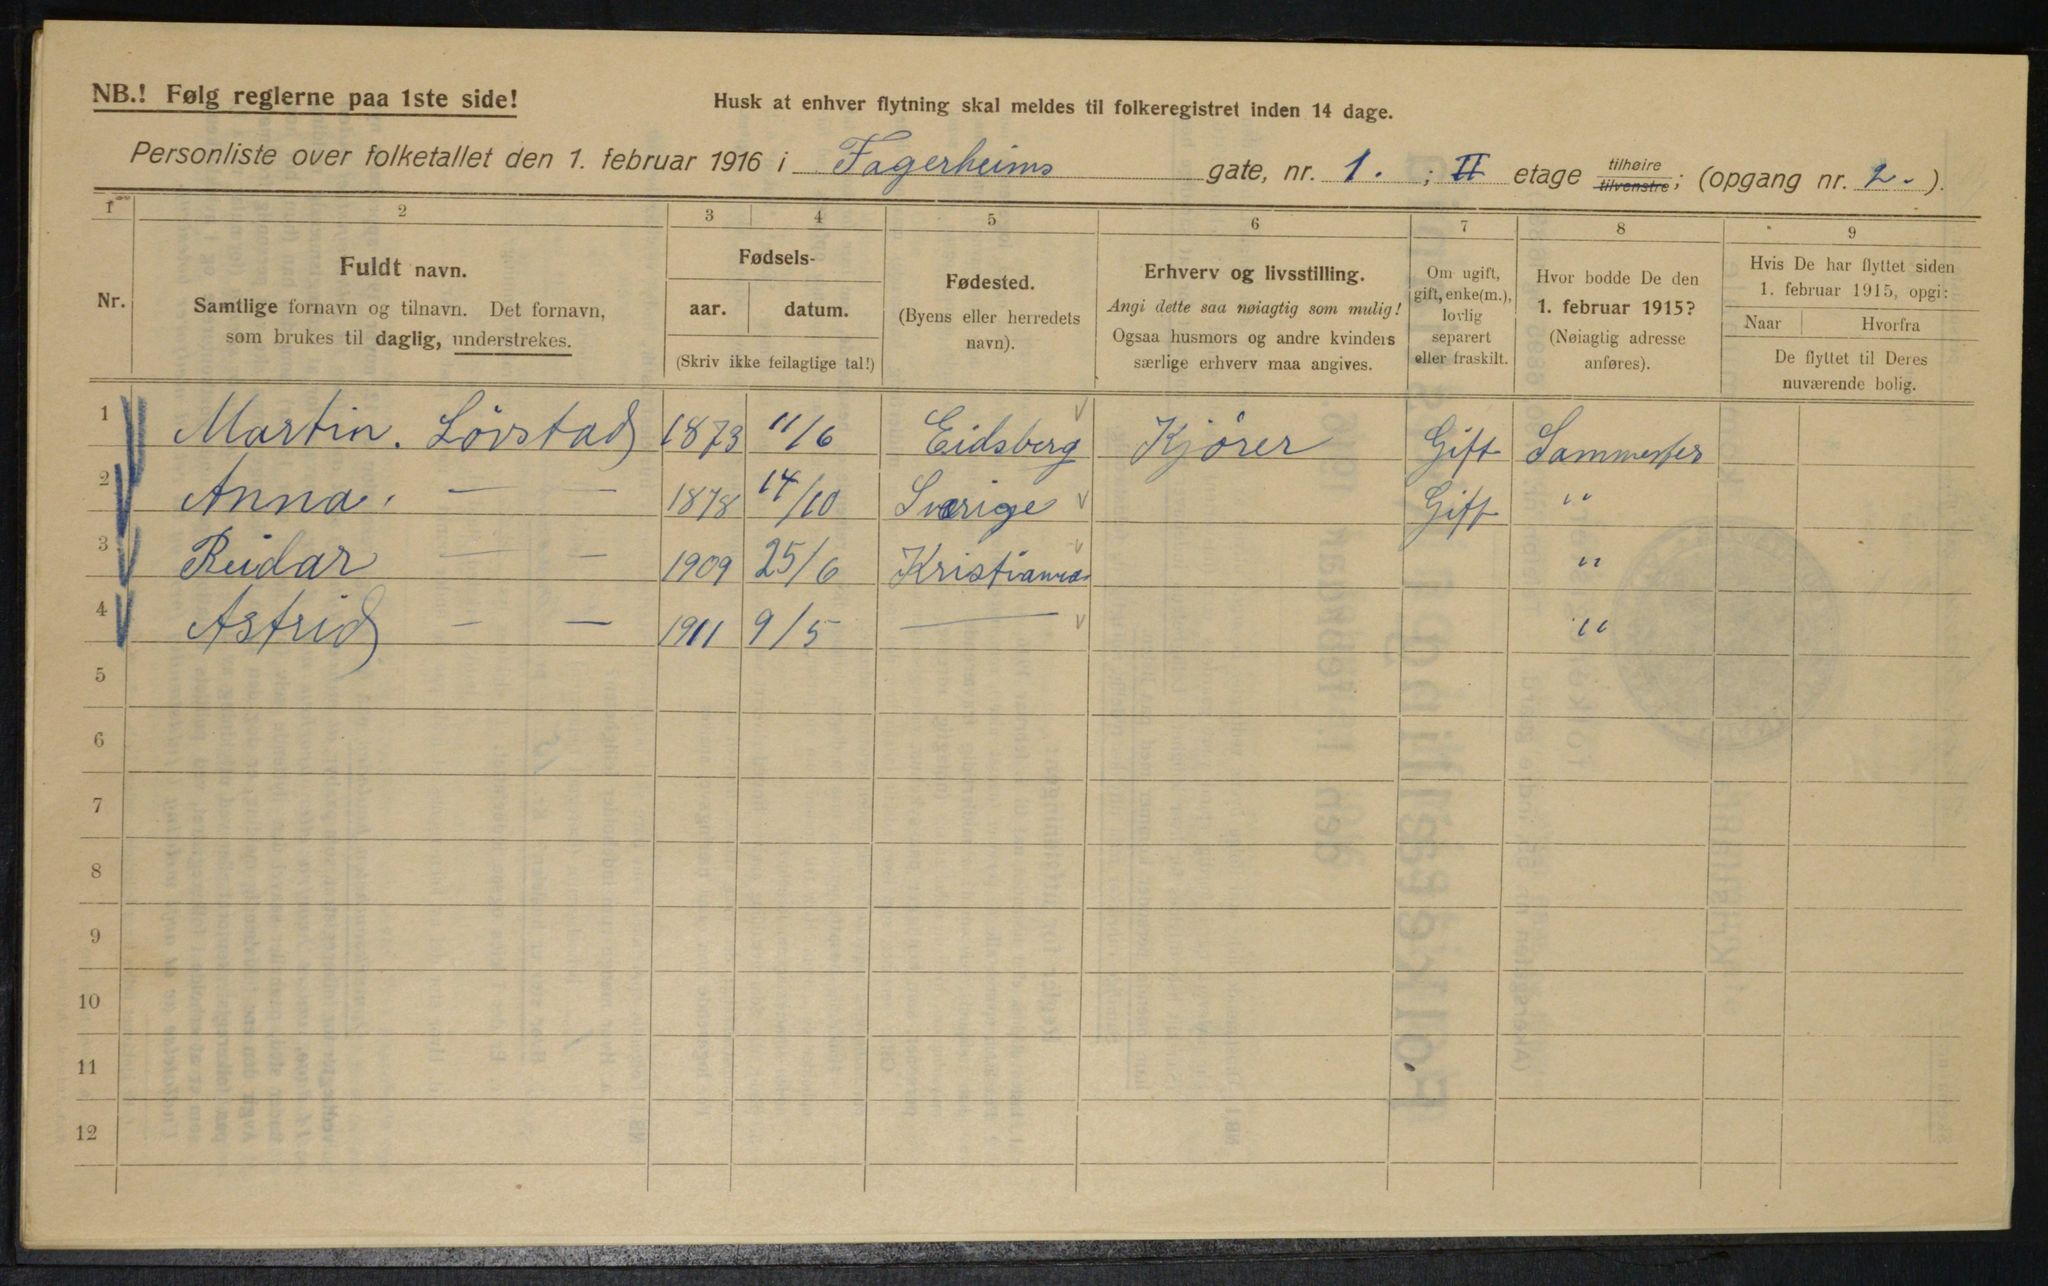 NB.! Følg reglerne paa 1ste side!
Husk at enhver flytning skal meldes til folkeregistret inden 14 dage.
Personliste over folketallet den 1. februar 1916 i Fagerheims gate, nr. 1. ; II etage tilhøire tilvenstre; (opgang nr. 2. ).
1 2 3 4 5 6 7 8 9
Nr.
Fuldt navn.
Samtlige fornavn og tilnavn. Det fornavn,
som brukes til daglig, understrekes.
Fødsels-
aar. datum.
(Skriv ikke feilagtige tal!)
Fødested.
(Byens eller herredets
navn).
Erhverv og livsstilling.
Angi dette saa nøiagtig som mulig!
Ogsaa husmors og andre kvinders
særlige erhverv maa angives.
Om ugift,
gift, enke(m.),
lovlig
separert
eller fraskilt.
Hvor bodde De den
1. februar 1915?
(Nøiagtig adresse
anføres).
Hvis De har flyttet siden
1. februar 1915, opgi:
Naar Hvorfra
De flyttet til Deres
nuværende bolig.
1 Martin. Lövstad 1873 11/6 Eidsberg Kjörer Gift Sammested
2 Anna. — — 1878 14/10 Sverige Gift "
3 Reidar — — 1909 25/6 Kristiania "
4 Astrid — — 1911 9/5 — "
5
6
7
8
9
10
11
12